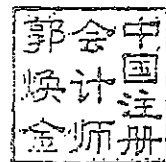 中国注册
会计师
郭焕金